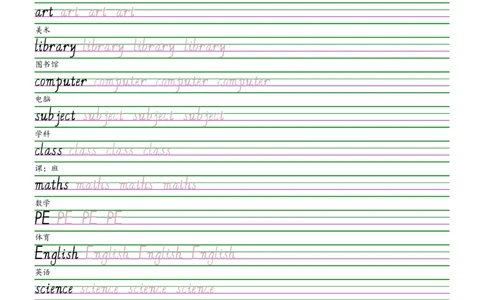 art art art art
美术
library library library library
图书馆
computer computer computer computer
电脑
subject subject subject subject
学科
class class class class
课；班
maths maths maths maths
数学
PE PE PE PE
体育
English English English English
英语
science science science science